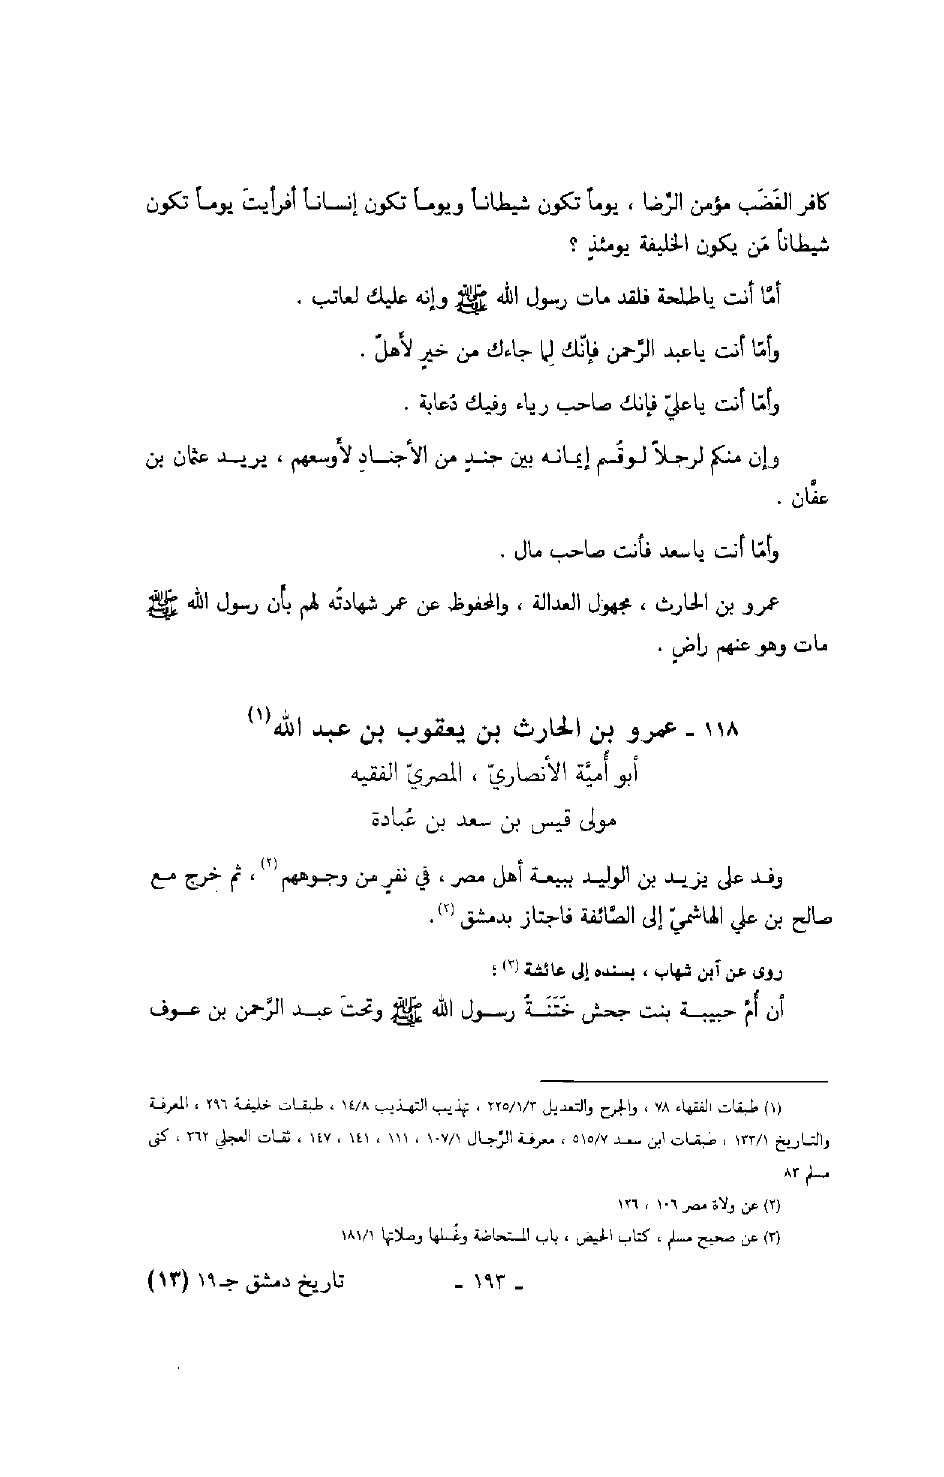 كافر الغَضَب مؤمن الرَّضا ، يوماً تكون شيطانـاً ويومـاً تكون إنسـانـاً أفرأيتَ يومـاً تكون
شيطاناً مَن يكون الخليفة يومئذٍ ؟
أمّا أنت ياطلحة فلقد مات رسول الله ﷺ وإنه عليك لعاتب .
وأمّا أنت ياعبد الرَّحمن فإنّك لِما جاءك من خيرٍ لأَهلٌ .
وأمّا أنت ياعليّ فإنك صاحب رياء وفيك دُعابة .
وإن منكم لرجـلاً لـوقُـسم إيمـانـه بين جنـدٍ من الأجنـادِ لأَوسعهم ، يريـد عثمان بن
عفّان .
وأمّا أنت ياسعد فأنت صاحب مال .
عمرو بن الحارث ، مجهول العدالة ، والمحفوظ عن عمر شهادتُه لهم بأن رسول الله ﷺ
مات وهو عنهم راضٍ .
١١٨ ـ عمرو بن الحارث بن يعقوب بن عبد الله(١)
أبو أُميَّة الأنصاريّ ، المصريّ الفقيه
مولى قيس بن سعد بن عُبادة
وفـد على يزيـد بن الوليـد ببيعـة أهل مصر ، في نفرٍ من وجـوههم(٢) ، ثم خرج مـع
صالح بن علي الهاشميّ إلى الصَّائفة فاجتاز بدمشق(٢).
روى عن آبن شهاب ، بسنده إلى عائشة(٣) ؛
أن أُمَّ حبيبـة بنت جحش خَتَنَـةُ رسـول الله ﷺ وتحتَ عبـد الرَّحمن بن عـوف
(١) طبقات الفقهاء ٧٨ ، والجرح والتعديل ٢٢٥/١/٣ ، تهذيب التهذيب ١٤/٨ ، طبقـات خليفـة ٢٩٦ ، المعرفـة
والتـاريخ ١٣٣/١ ، طبقـات ابن سعـد ٥١٥/٧ ، معرفـة الرِّجـال ١٠٧/١ ، ١١١ ، ١٤١ ، ١٤٧ ، ثقـات العجلي ٣٦٢ ، كنى
مسلم ٨٣
(٢) عن ولاة مصر ١٠٦ ، ١٣٦
(٣) عن صحيح مسلم ، كتاب الحيض ، باب المستحاضة وغُسلها وصلاتها ١٨١/١
ـ ١٩٣ ـ تاريخ دمشق جـ١٩ (١٣)